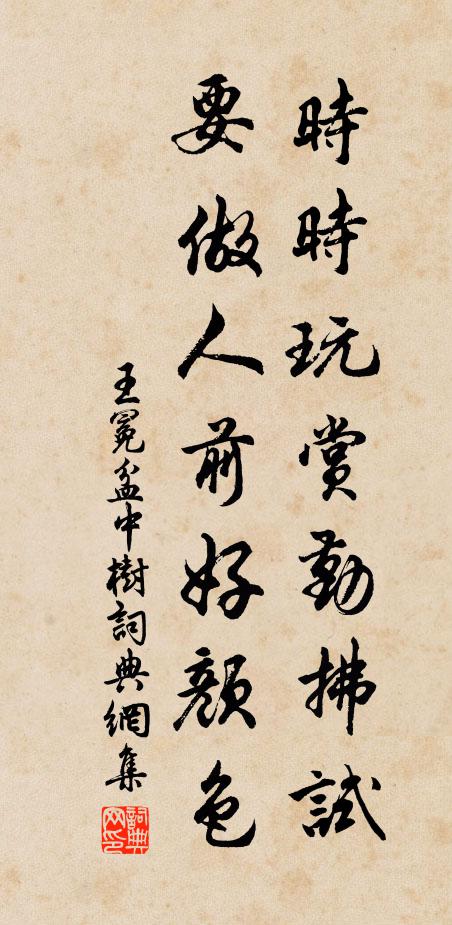 時時玩賞勤拂試
要做人前好顔色
王冕盆中樹詞典網集
詞典网印